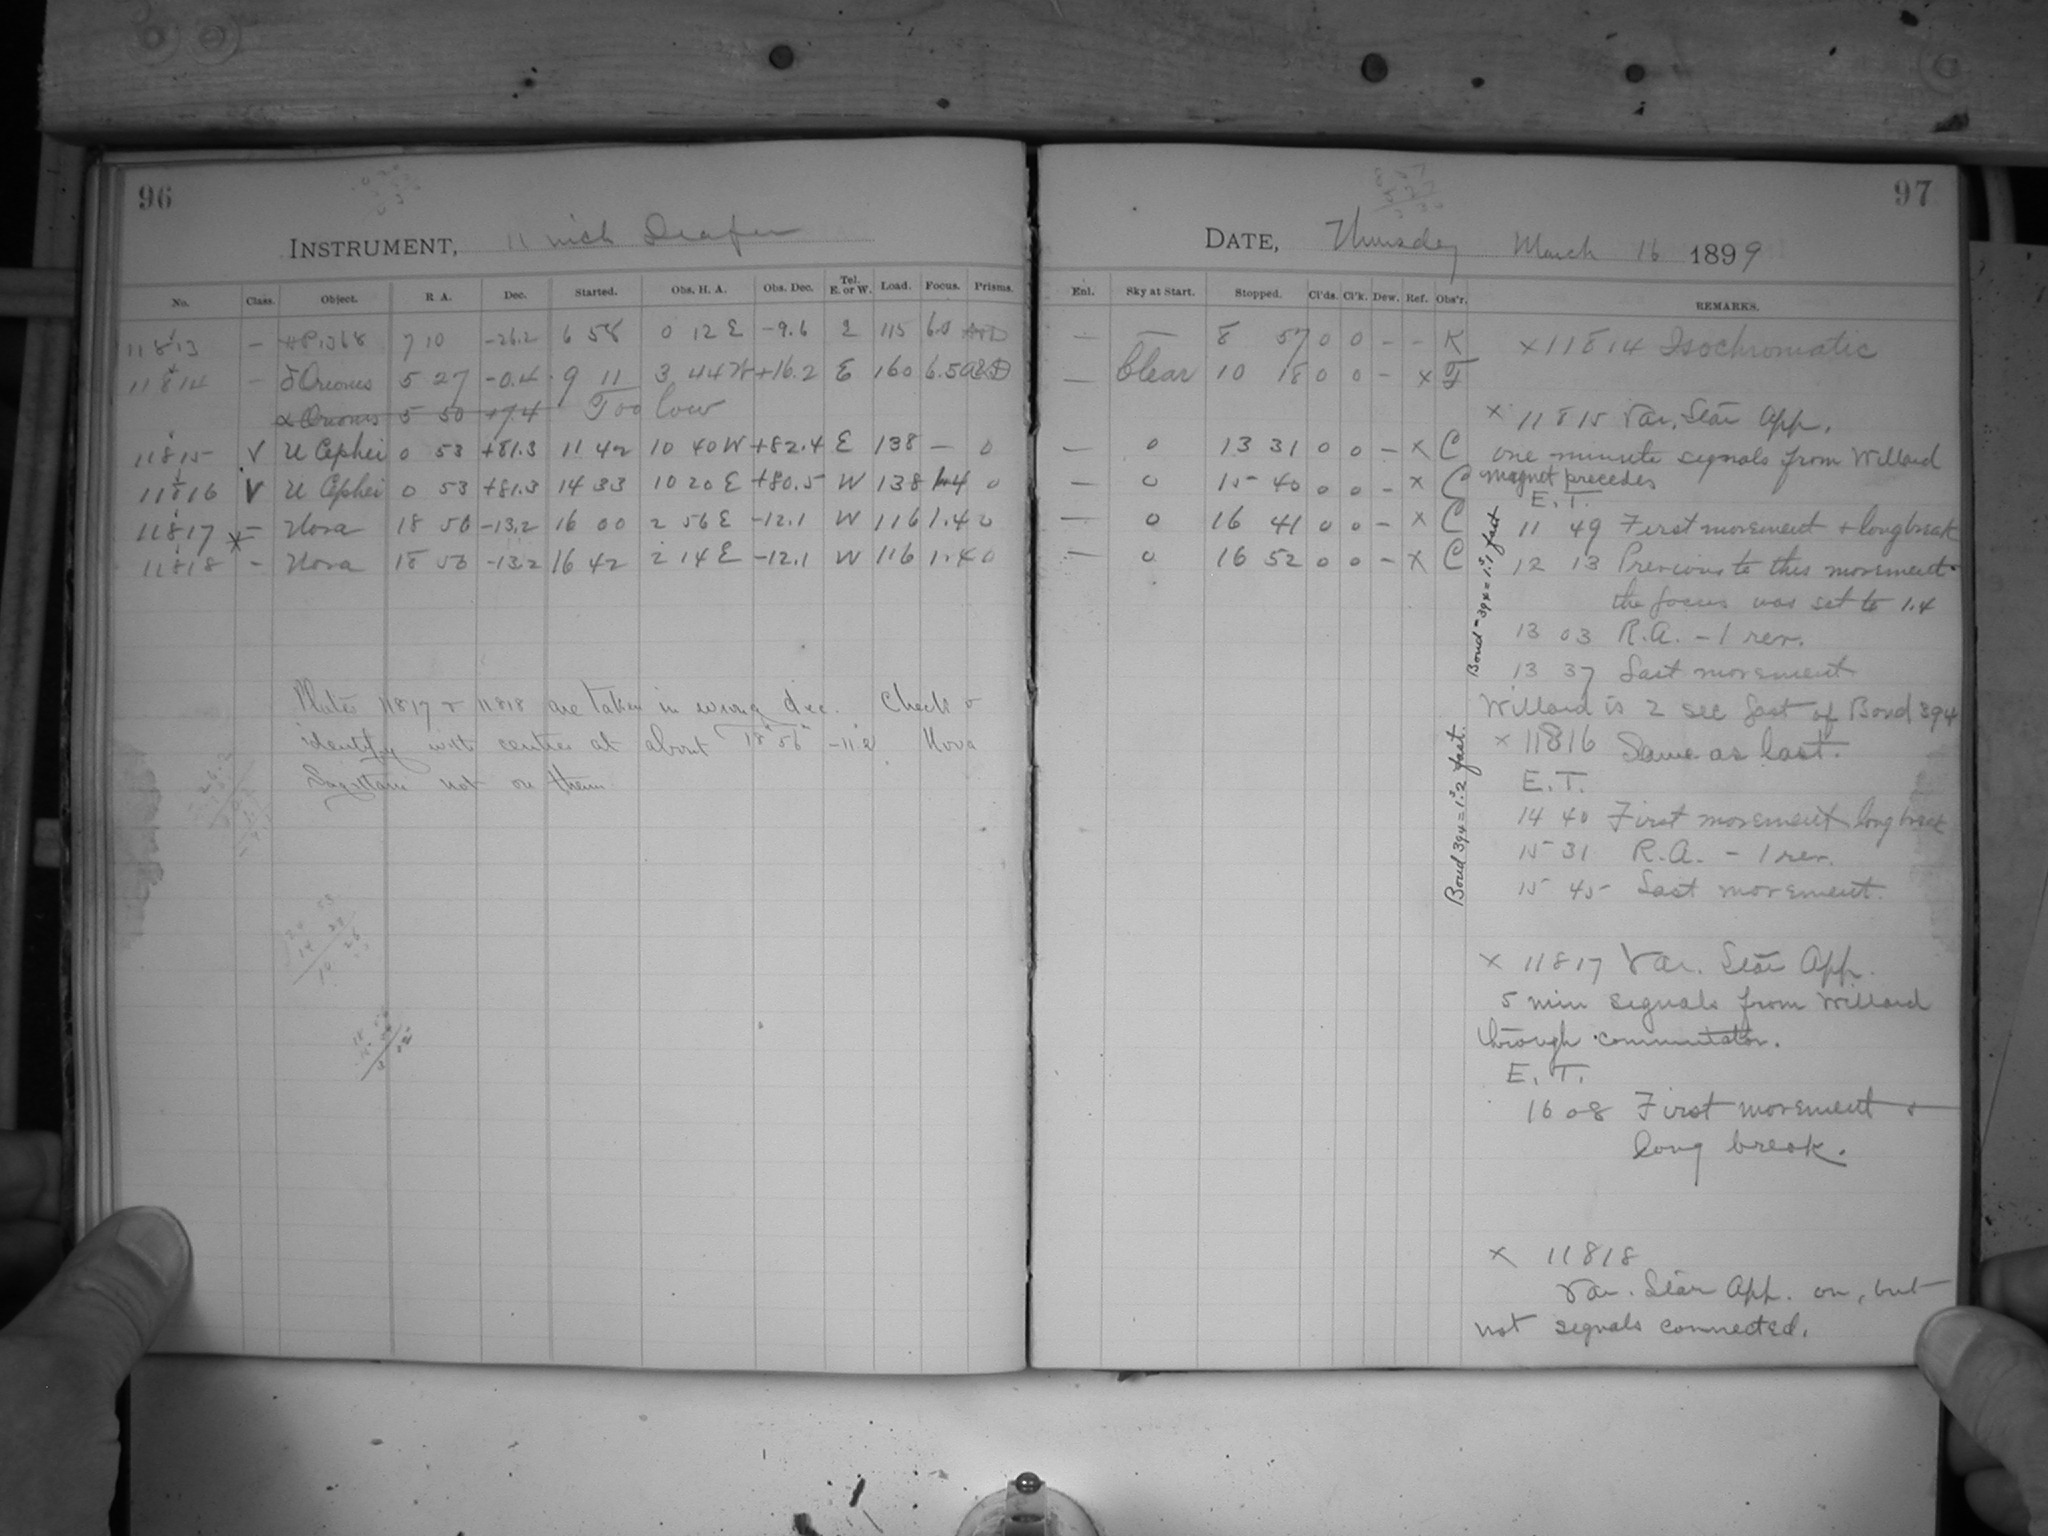 96
INSTRUMENT, 11 inch Draper
No. Class. Object. R A. Dec. Started. Obs. H. A. Obs. Dec. Tel. E. or W. Load. Focus. Prisms.
11813 — 7 10 -26.2 6 58 0 12 E -9.6 E 115 6.5
11814 — δ Orionis 5 27 -0.4 9 11 3 44 W +16.2 E 160 6.5
α Orionis 5 50 +7.4 Too low
11815 V U Cephei 0 53 +81.3 11 42 10 40 W +82.4 E 138 — 0
11816 V U Cephei 0 53 +81.3 14 33 10 20 E +80.5 W 138 1.4 0
11817 x — Nova 18 56 -13.2 16 00 2 56 E -12.1 W 116 1.4 0
11818 - Nova 18 56 -13.2 16 42 2 14 E -12.1 W 116 1.4 0
Plates 11817 & 11818 are taken in wrong dec. Check &
identify with centre at about 18h 56m -11.2 Nova
not on them
97
DATE, Thursday March 16 1899
Enl. Sky at Start. Stopped. Cl'ds. Cl'k. Dew. Ref. Obs'r. REMARKS.
— — 8 57 0 0 - - K
— Clear 10 18 0 0 - x F
— 0 13 31 0 0 - x C
— 0 15 40 0 0 - x C
— 0 16 41 0 0 - x C
— 0 16 52 0 0 - x C
x 11814 Isochromatic
x 11815 Var. Star App.
one minute signals from Willard
magnet precedes
E. T.
11 49 First movement + long break
12 13 Previous to this movement
the focus was set to 1.4
13 03 R.A. - 1 rev.
13 37 Last movement
Willard is 2 sec fast of Bond 394
Bond 394 = 1.s1 fast
x 11816 Same as last.
E. T.
14 40 First movement long break
15 31 R.A. - 1 rev.
15 45 Last movement.
Bond 394 = 1.s2 fast.
x 11817 Var. Star App.
5 min signals from Willard
through commutator.
E. T.
16 08 First movement &
long break.
x 11818
Var. Star App. on, but
not signals connected.